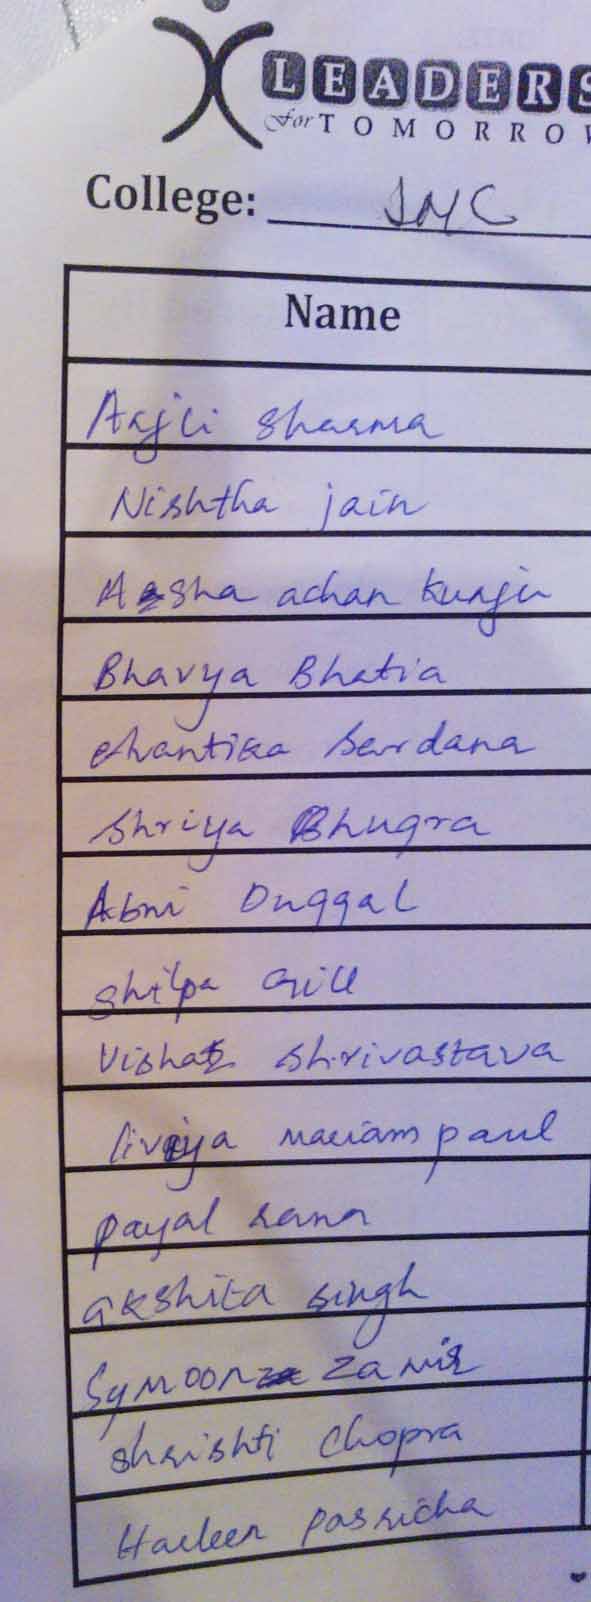 LEADERS
for TOMORROW
College: JMC
Name
Anjli Sharma
Nishtha jain
Aasha achan kunju
Bhavya Bhatia
Chantika Sardana
Shriya Bhugra
Abni Duggal
Shilpa Gill
Shrivastava
mariam paul
payal rana
akshita singh
Symoon Zamir
Shrishti Chopra
Harleen Passricha